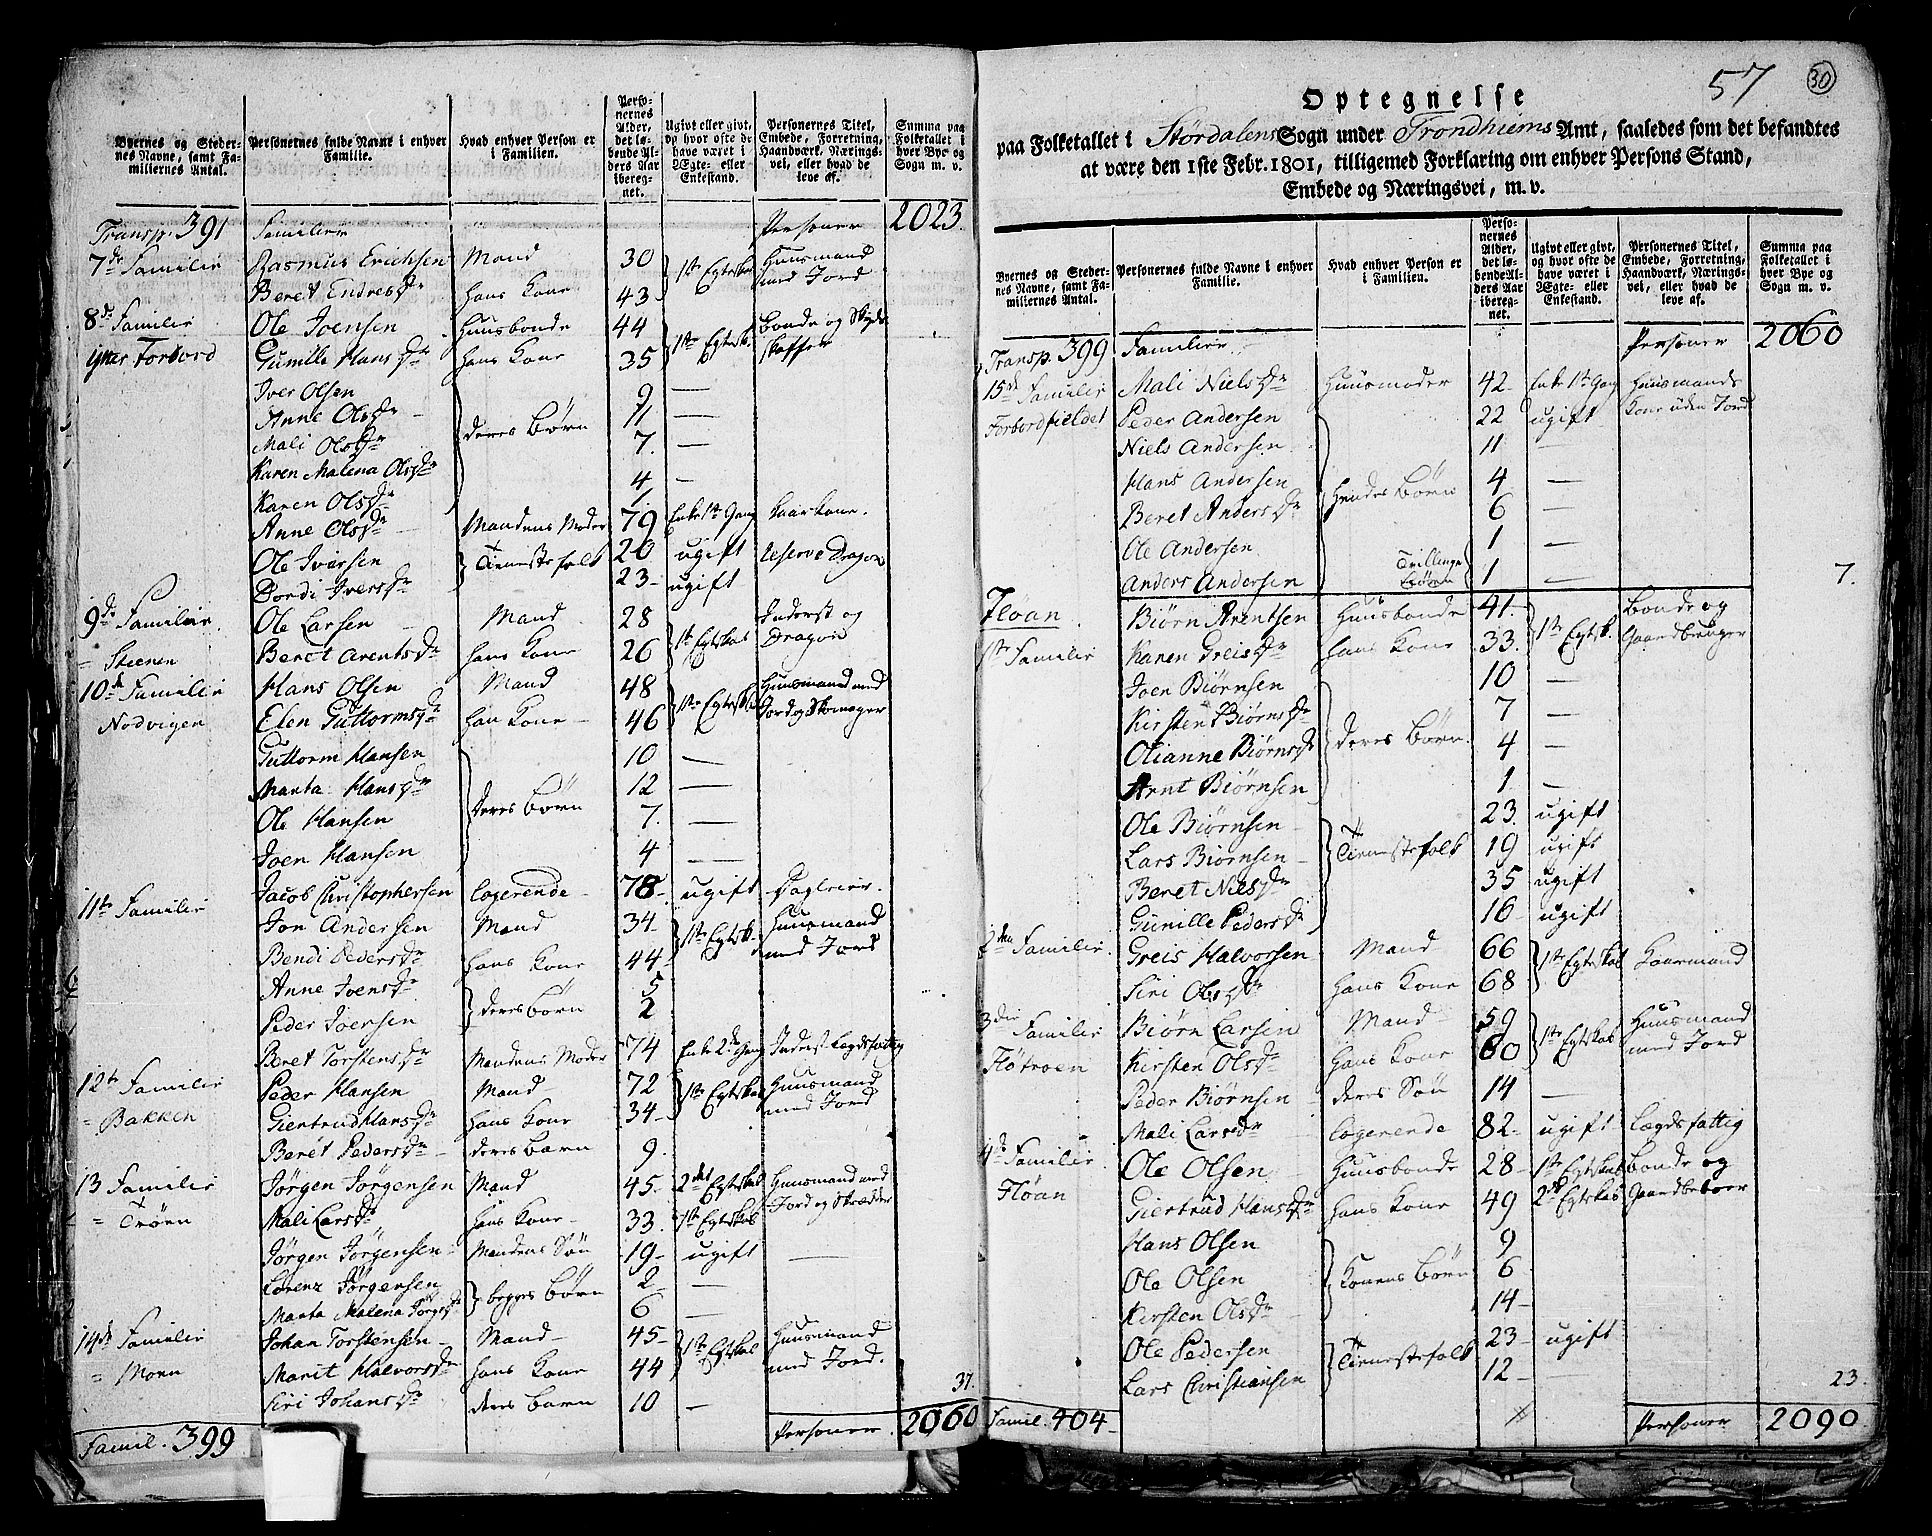 Byernes og Stedernes Navne, samt Familiernes Antal. | Personernes fulde Navne i enhver Familie. | Hvad enhver Person er i Familien. | Personernes Alder, det løbende Alders Aar iberegnet. | Ugivt eller givt, og hvor ofte de have været i Ægte- eller Enkestand. | Personernes Titel, Embede, Forretning, Haandværk, Næringsvei, eller hvad de leve af. | Summa paa Folketallet i hver Bye og Sogn m. v.
Transp. 391 Familier Personer 2023
7de Familie Rasmus Erichsen Mand 30 1te Egtesk. Huusmand med Jord
Beret Endresdr hans Kone 43
8de Familie Ole Joensen Huusbonde 44 1te Egtesk. Bonde og Skydsskaffer
Ytter Forbord Gunille Hansdr hans Kone 35
Iver Olsen deres Børn 9 —
Anne Olsdr 11 —
Mali Olsdr 7. —
Karen Malena Olsdr 4 —
Karen Olsdr 1
Anne Olsdr Mandens Moder 79 Enke 1te Gang Kaarkone.
Ole Iversen Tienestefolk 20 ugift Reserve Dragon
Dordi Iversdr 23 ugift
9de Familie Ole Larsen Mand 28 1te Egteskab Inderst og Dragon
= Steenen Beret Arentsdr hans Kone 26
10de Familie Hans Olsen Mand 48 1te Egtesk. Huusmand med Jord og Skomager
Nodvigen Elen Guttormsdr han Kone 46
Guttorm Hansen deres Børn 10 —
Marta Hansdr 12 —
Ole Hansen 7. —
Joen Hansen 4 —
Jacob Christophersen Logerende 78 ugift Dagleier.
11te Familie Jon Andersen Mand 34 1te Egtesk. Huusmand med Jord
Bendi Pedersdr hans Kone 44
Anne Joensdr deres Børn 5
Peder Joensen 2
Beret Torstensdr Mandens Moder 74 Enke 2de Gang Inderst Lægdsfattig
12te Familie Peder Hansen Mand 72 1te Egteskab Huusmand med Jord
= Bakken Giertrud Hansdr hans Kone 34
Beret Pedersdr deres Barn 9.
13 Familie Jørgen Jørgensen Mand 45 2det Egteskab Huusmand med Jord og Skrædder
= Trøen Mali Larsdr hans Kone 33. 1te Egteskab
Jørgen Jørgensen Mandens Søn 19 ugift —
Lorenz Jørgensen begges Børn 2 —
Marta Malena Jørgsdr 6 —
14de Familie Johan Torstensen Mand 45 1te Egteskab Huusmand med Jord.
= Moen Marit Halvorsdr hans Kone 44
Siri Johansdr deres Barn 10 — 37.
Famil. 399 Personer 2060
57 30
Optegnelse
paa Folketallet i Stördalens Sogn under Trondhiems Amt, saaledes som det befandtes
at være den 1ste Febr. 1801, tilligemed Forklaring om enhver Persons Stand,
Embede og Næringsvei, m. v.
Byernes og Stedernes Navne, samt Familiernes Antal. | Personernes fulde Navne i enhver Familie. | Hvad enhver Person er i Familien. | Personernes Alder, det løbende Alders Aar iberegnet. | Ugivt eller givt, og hvor ofte de have været i Ægte- eller Enkestand. | Personernes Titel, Embede, Forretning, Haandværk, Næringsvei, eller hvad de leve af. | Summa paa Folketallet i hver Bye og Sogn m. v.
Transp. 399 Familier Personer 2060
15de Familie Mali Nielsdr Huusmoder 42 Enke 1te Gang Huusmands Kone uden Jord
Forbordfieldet Peder Andersen Hendes Børn 22 ugift
Niels Andersen 11 —
Hans Andersen 4 —
Beret Andersdr 6 —
Ole Andersen Tvillinge Børn 1 —
Anders Andersen 1 — 7.
Fløan Biørn Arentsen Huusbonde 41 1te Egtesk. Bonde og Gaardbruger
1te Familie Karen Greisdr hans Kone 33.
Joen Biørnsen deres Børn 10 —
Kirsten Biørnsdr 7 —
Olianne Biørnsdr 4 —
Arnt Biørnsen 1 —
Ole Biørnsen Tienestefolk 23. ugift
Lars Biørnsen 19 ugift
Beret Nielsdr 35 ugift
Gunille Pedersdr 16 ugift
2den Familie Greis Halvorsen Mand 66 1te Egteskab Kaarmand
Siri Olsdr hans Kone 68
3die Familie Biørn Larsen Mand 59 1te Egteskab Huusmand med Jord
Fløtroen Kirsten Olsdr hans Kone 60
Peder Biørnsen deres Søn 14 —
Mali Larsdr Logerende 82 ugift Lægdsfattig
4de Familie Ole Olsen Huusbonde 28 1te Egteskab Bonde og Gaardbeboer
Fløan Giertrud Hansdr hans Kone 49 2det Egteskab
Hans Olsen Konens Børn 9
Ole Olsen 6
Kirsten Olsdr 14
Ole Pedersen Tienestefolk 23 ugift
Lars Christiansen 12 — 23.
Famil. 404 Personer 2090